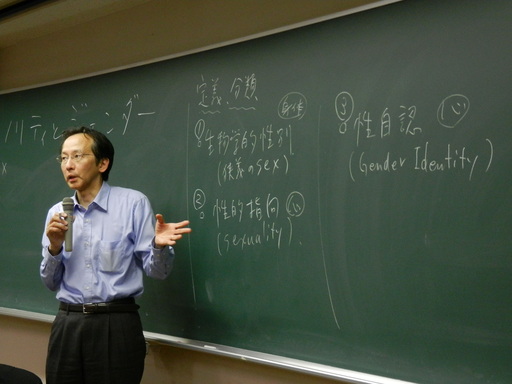 ノリティとジェンダー
x
定義、分類
① 生物学的性別 身体
(狭義のsex)
② 性的指向 心
(sexuality)
③ 性自認 心
(Gender Identity)